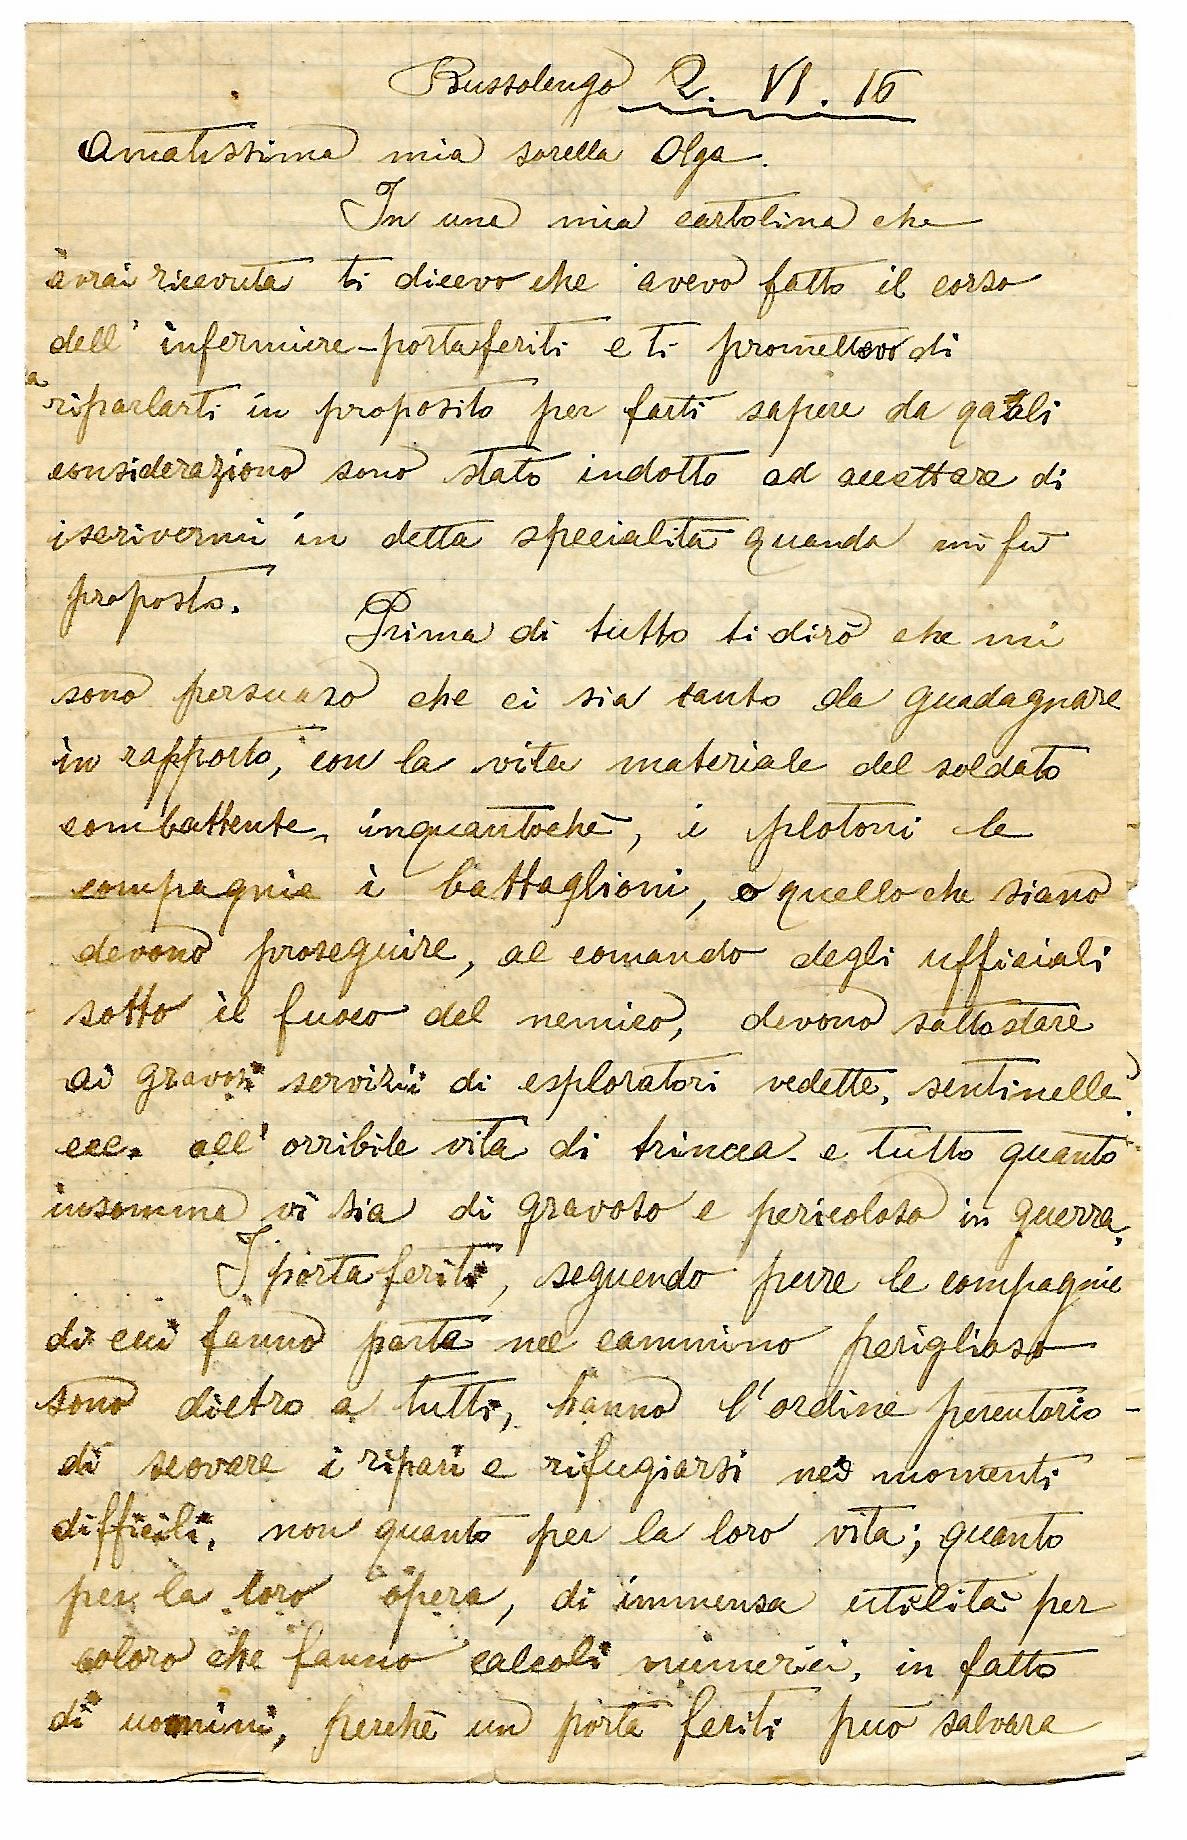 Bussolengo 2. VI. 16
Amatissima mia sorella Olga.
In una mia cartolina che
avrai ricevuta ti dicevo che avevo fatto il corso
dell' infermiere-portaferiti e ti promettevo di
riparlarti in proposito per farti sapere da quali
considerazione sono stato indotto ad accettare di
iscrivermi in detta specialità quando mi fù
proposto.
Prima di tutto ti dirò che mi
sono persuaso che ci sia tanto da guadagnare
in rapporto, con la vita materiale del soldato
combattente, inquantochè, i plotoni le
compagnie i battaglioni, o quello che siano
devono proseguire, al comando degli ufficiali
sotto il fuoco del nemico, devono sottostare
ai gravosi servizii di esploratori vedette, sentinelle
ecc. all' orribile vita di trincea. e tutto quanto
insomma vi sia di gravoso e pericoloso in guerra,
I porta feriti, seguendo pure le compagnie
di cui fanno parte nel cammino periglioso
sono dietro a tutti, hanno l'ordine perentorio
di scovare i ripari e rifugiarsi nei momenti
difficili, non quanto per la loro vita; quanto
per la loro opera, di immensa utilità per
coloro che fanno calcoli numerici, in fatto
di uomini, perchè un porta feriti può salvare